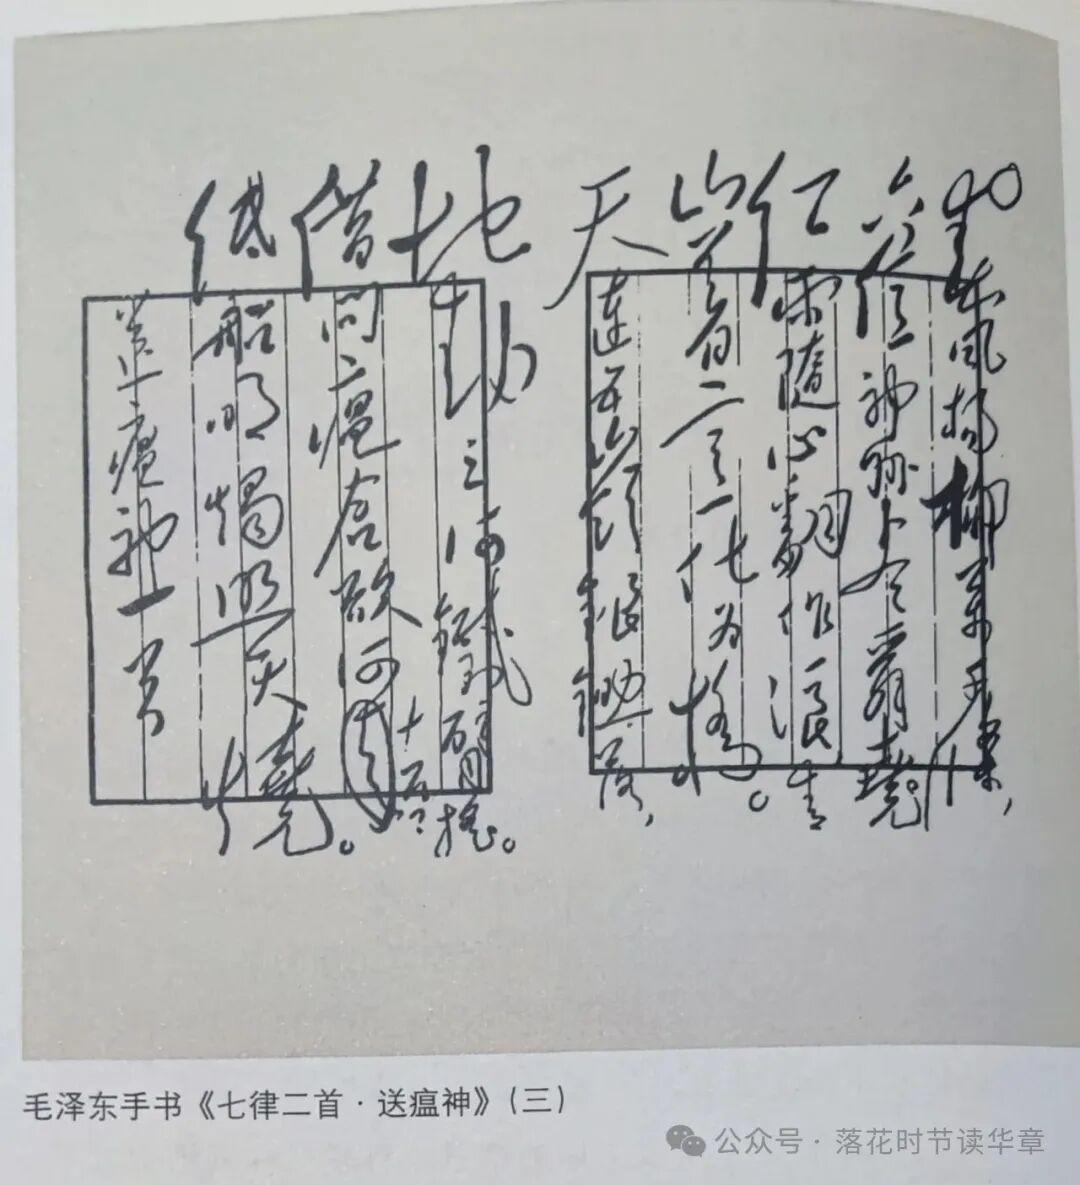 风楊柳万千條，
六億神州尽舜堯。
红雨隨心翻作浪青
山着意化为桥。
天連五嶺銀鋤落，
地動三河鐵臂摇。
借問瘟君欲何往
纸船明燭照天燒。
送瘟神一首
毛泽东手书《七律二首·送瘟神》（三）
公众号·落花时节读华章